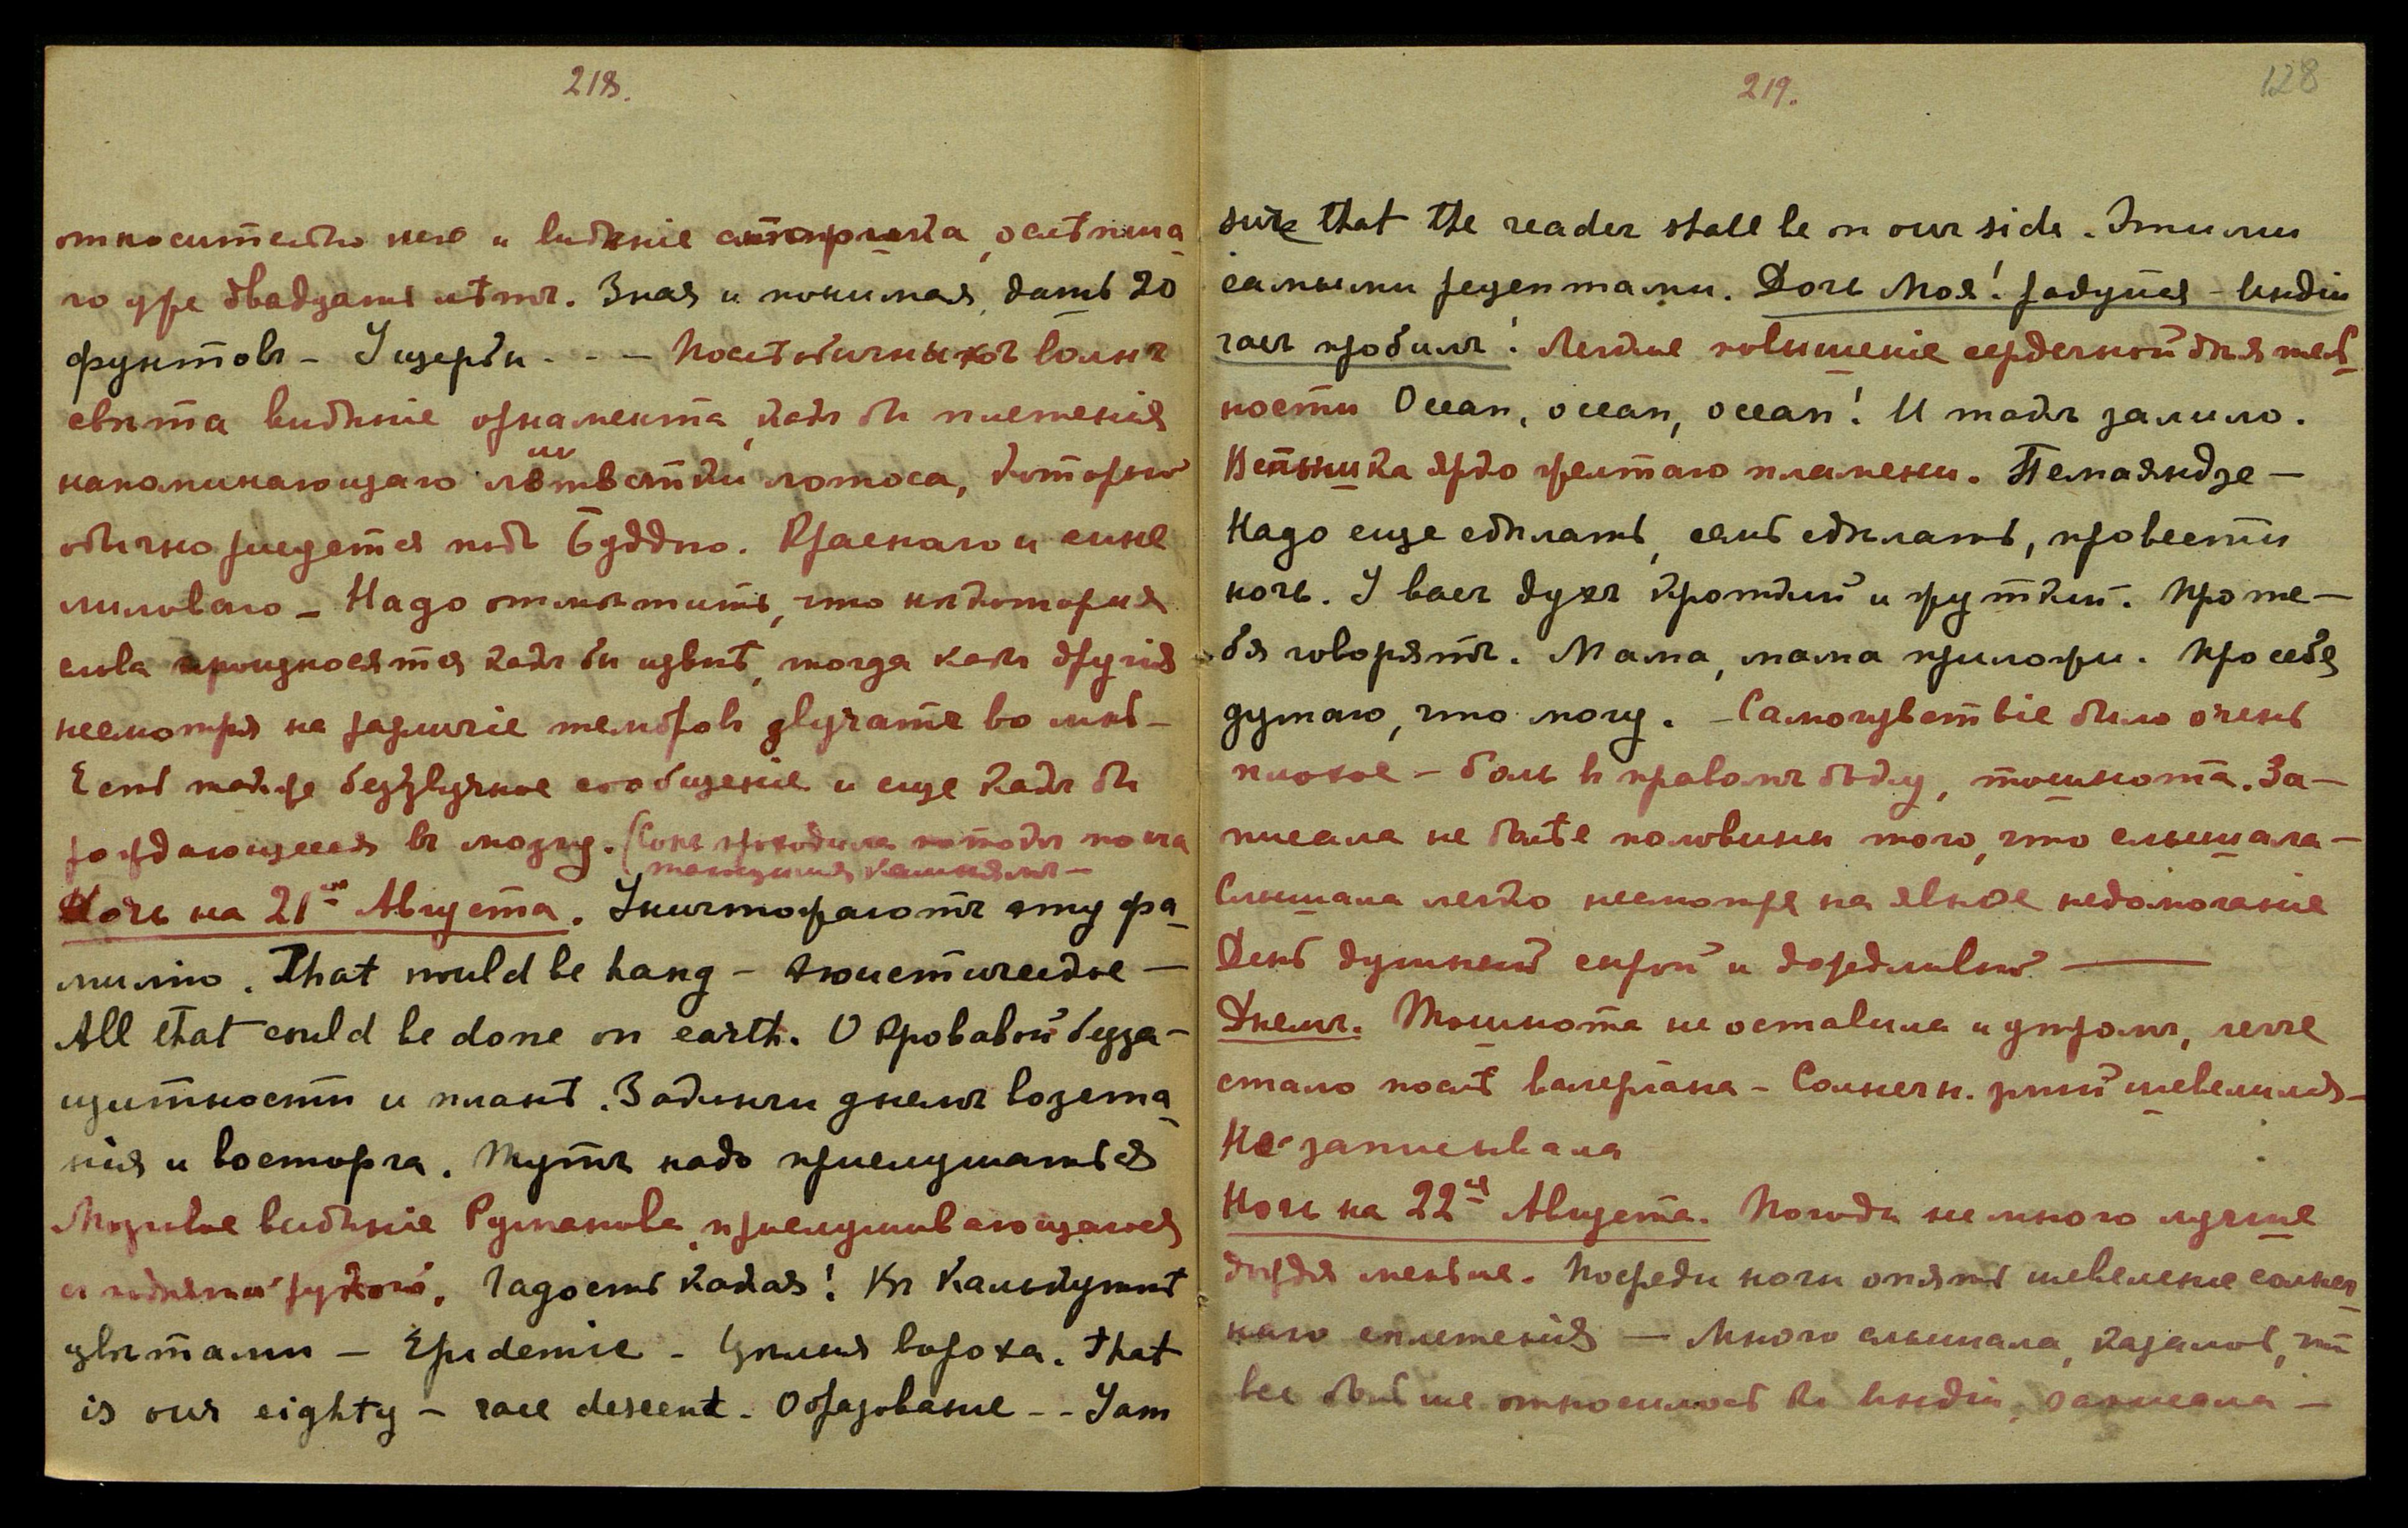 218.
относительно него и видѣніе старика, ослѣпша-
го уже двадцать лѣтъ. Зная и понимая, дать 20
фунтовъ – Ущербы - - – Послѣ обычныхъ волнъ
свѣта видѣніе орнамента, какъ бы плетенія
напоминающаго лѣпестки лотоса, который
обычно рисуется подъ Буддою. Краснаго и сине
лиловаго – Надо отмѣтить, что нѣкоторыя
слова произносятся какъ бы извнѣ, тогда какъ другія
несмотря на различіе тембровъ звучатъ во мнѣ –
Есть также беззвучное сообщеніе и еще какъ бы
рождающееся въ мозгу. (Сонъ
Ночь на 21ое Августа. Уничтожаютъ эту фа-
милію. That would be hang – юмористическое –
All that could be done on earth. О кровавой безза-
щитности и планѣ. Зодинги днемъ возста-
нія и восторга. Тутъ надо прислушаться
Мозговое видѣніе Руманова, прислушивающагося
съ поднятой рукой. Гадость какая! Къ Калькуттѣ
цвѣтами – Epidemie – Цѣлыя вороха. That
is our eighty – race descent. Образованіе - - I am
219.
128
sure that the reader shall be on our side. Этими
самыми рецептами. Дочь Моя! радуйся – Индіи
часъ пробилъ! Легкое повышеніе сердечной дѣятель-
ности Ocean, ocean, ocean! И такъ залило.
Вспышка ярко желтаго пламени. Пемаяндзе –
Надо еще сдѣлать, самъ сдѣлать, провести
ночь. У васъ духъ кроткій и чуткій. Про те-
бя говорятъ. Мама, мама приложи. Про себя
думаю, что могу. – Самочувствіе было очень
плохое – боль въ правомъ боку, тошнота. За-
писала не болѣе половины того, что слышала –
Слышала легко несмотря на явное недомоганіе
День душный сырой и дождливый ———
Днемъ. Тошнота не оставила и утромъ, легче
стало послѣ валеріана – Солнечн. змій шевелился –
Не записывала
Ночь на 22ое Августа. Погода немного лучше
дождя меньше. Посреди ночи опять шевеленіе солнеч-
наго сплетенія — Много слышала, казалось, что
все больше относилось къ Индіи, записала –